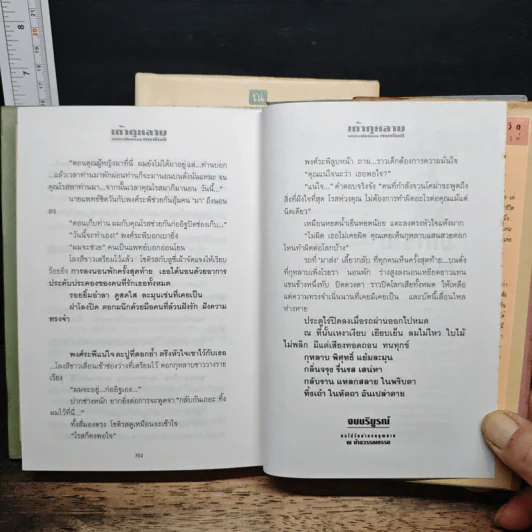 ณ
เถ้ากุหลาบ
"ตอนคุณผู้หญิงมาที่นี่ ผมยังไม่ได้มาอยู่ แต่...ท่านบอก
...แล้วเวลาท่านมาพักผ่อนท่านก็จะมานอนบนตั่งนั่นแหละ จน
คุณโรสพาท่านมา...จากนั้นเวลาคุณโรสมาก็มานอน วันนี้..."
นายแพทย์ชีวันกับพงศ์ระพีช่วยกันอุ้มคน "มา" ถึงนอน
ลง
"ตอนเก็บท่าน ผมกับคุณโรสช่วยกันก่ออิฐปิดช่องเก็บ..."
"วันนี้จะทำเอง!" พงศ์ระพีบอกเบายิ่ง
"ผมจะช่วย" คนเป็นแพทย์บอกอ่อนโยน
โลงสีขาวเตรียมไว้แล้ว โชติรสกับลูซี่เฝ้าจัดแจงให้เรียบ
ร้อยยิ่ง การลงนอนพักครั้งสุดท้าย เธอได้นอนด้วยอาการ
ประคับประคองของคนที่รักเธอทั้งหมด
รอยยิ้มอำลา ดูสดใส ละมุนเช่นที่เคยเป็น
ฝาโลงปิด ดอกผนึกด้วยมือคนที่ล้วนฝังรัก ฝังความ
ทรงจำ
พงศ์ระพีแน่ใจ ตะปูที่ตอกย้ำ ตรึงหัวใจเขาไว้กับเธอ
...โลงสีขาวเลื่อนเข้าช่องว่างที่เตรียมไว้ ดอกกุหลาบขาววางราย
เรียง
"ผมจะอยู่...ก่ออิฐเอง..."
ปากช่างหนัก ยากยิ่งต่อการจะพูดจา "กลับกันเถอะ ทิ้ง
ผมไว้ที่นี่..."
ทั้งสี่มองตรง โชติรสดูเหมือนจะเข้าใจ
"โรสก็คงพอใจ"
352
เถ้ากุหลาบ
พงศ์ระพีลูบหน้า ถาม...ราวเด็กต้องการความมั่นใจ
"คุณแน่ใจนะว่า เธอพอใจ?"
"แน่ใจ..." คำตอบจริงจัง "คนที่กำลังจวนโคม่าจะพูดถึง
สิ่งที่ฝังใจที่สุด โรสห่วงคุณ ไม่ต้องการทำผิดอะไรต่อคุณแม้แต่
นิดเดียว"
เหมือนหยดน้ำเย็นหยดน้อย แตะลงตรงหัวใจแห้งผาก
"ไม่ผิด เธอไม่เคยผิด คุณเคยเห็นกุหลาบแสนสวยดอก
ไหนทำผิดต่อโลกบ้าง"
ประตูไร้ปิดลงเมื่อรถผ่านออกไปหมด
ณ ที่นั้นเหงาเงียบ เยียบเย็น ลมไม่ไหว ใบไม้
ไม่พลิก มีแต่เสียงทอดถอน ทนทุกข์
กุหลาบ พิสุทธิ์ แย้มละมุน
กลิ่นจรุง ชื่นรส เสน่หา
กลับราน แหลกสลาย ในพริบตา
ทิ้งเถ้า ในหัตถา อันเปล่าดาย
จบบริบูรณ์
ณ บ้านวรรณกรรม